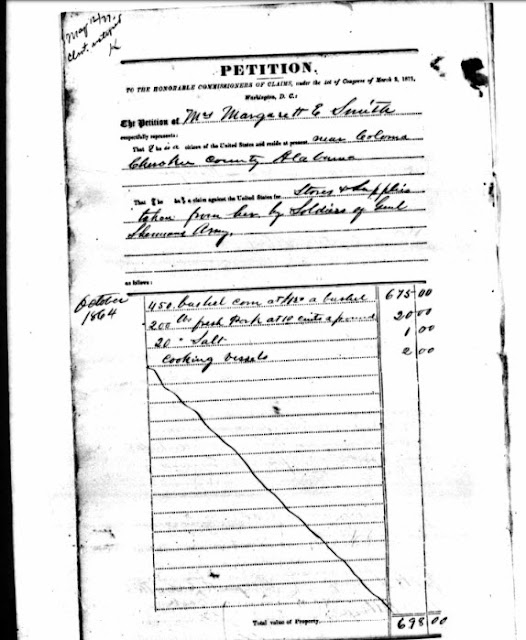 May 12/77.
PETITION,
TO THE HONORABLE COMMISSIONERS OF CLAIMS, under the act of Congress of March 3, 1871,
Washington, D. C.:
The Petition of Mrs Margarett E Smith
respectfully represents:
That citizen of the United States and reside at present near Coloma
Cherokee County Alabama
That a claim against the United States for Stores & Supplies
taken from her by Soldiers of Genl
Shermans Army.
as follows:
October
1864
450 bushel corn at 1.50 a bushel 675 00
200 lbs fresh Pork at 10 cents a pound 20 00
20 " Salt 1 00
Cooking Vessels 2 00
Total value of Property 698 00